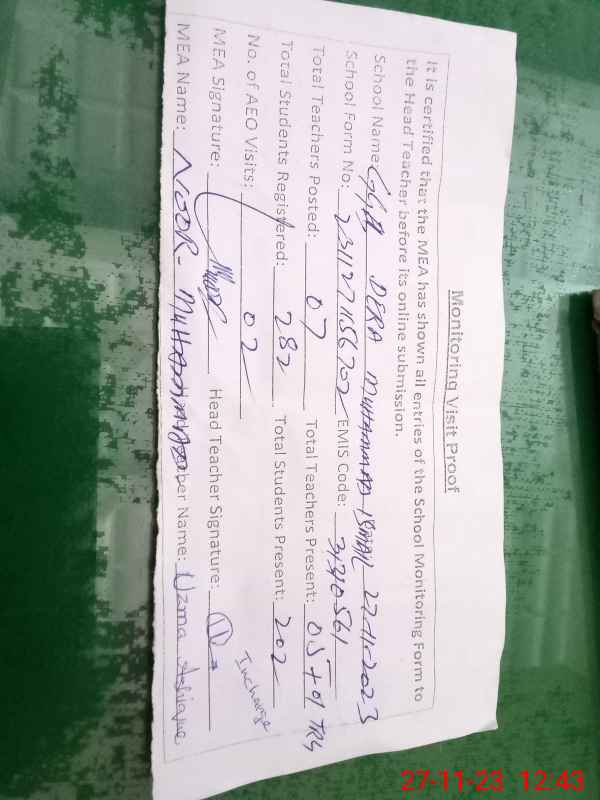 Monitoring Visit Proof
It is certified that the MEA has shown all entries of the School Monitoring Form to
the Head Teacher before its online submission.
School Name: DERA MUHAMMAD 27-11-2023
School Form No: EMIS Code:
Total Teachers Posted: 07 Total Teachers Present: 05+01
Total Students Registered: 282 Total Students Present: 202
No. of AEO Visits: 02 Incharge
MEA Signature: Head Teacher Signature:
MEA Name: NOOR-MUHAMMAD Name: Uzma Ashique
27-11-23 12:43